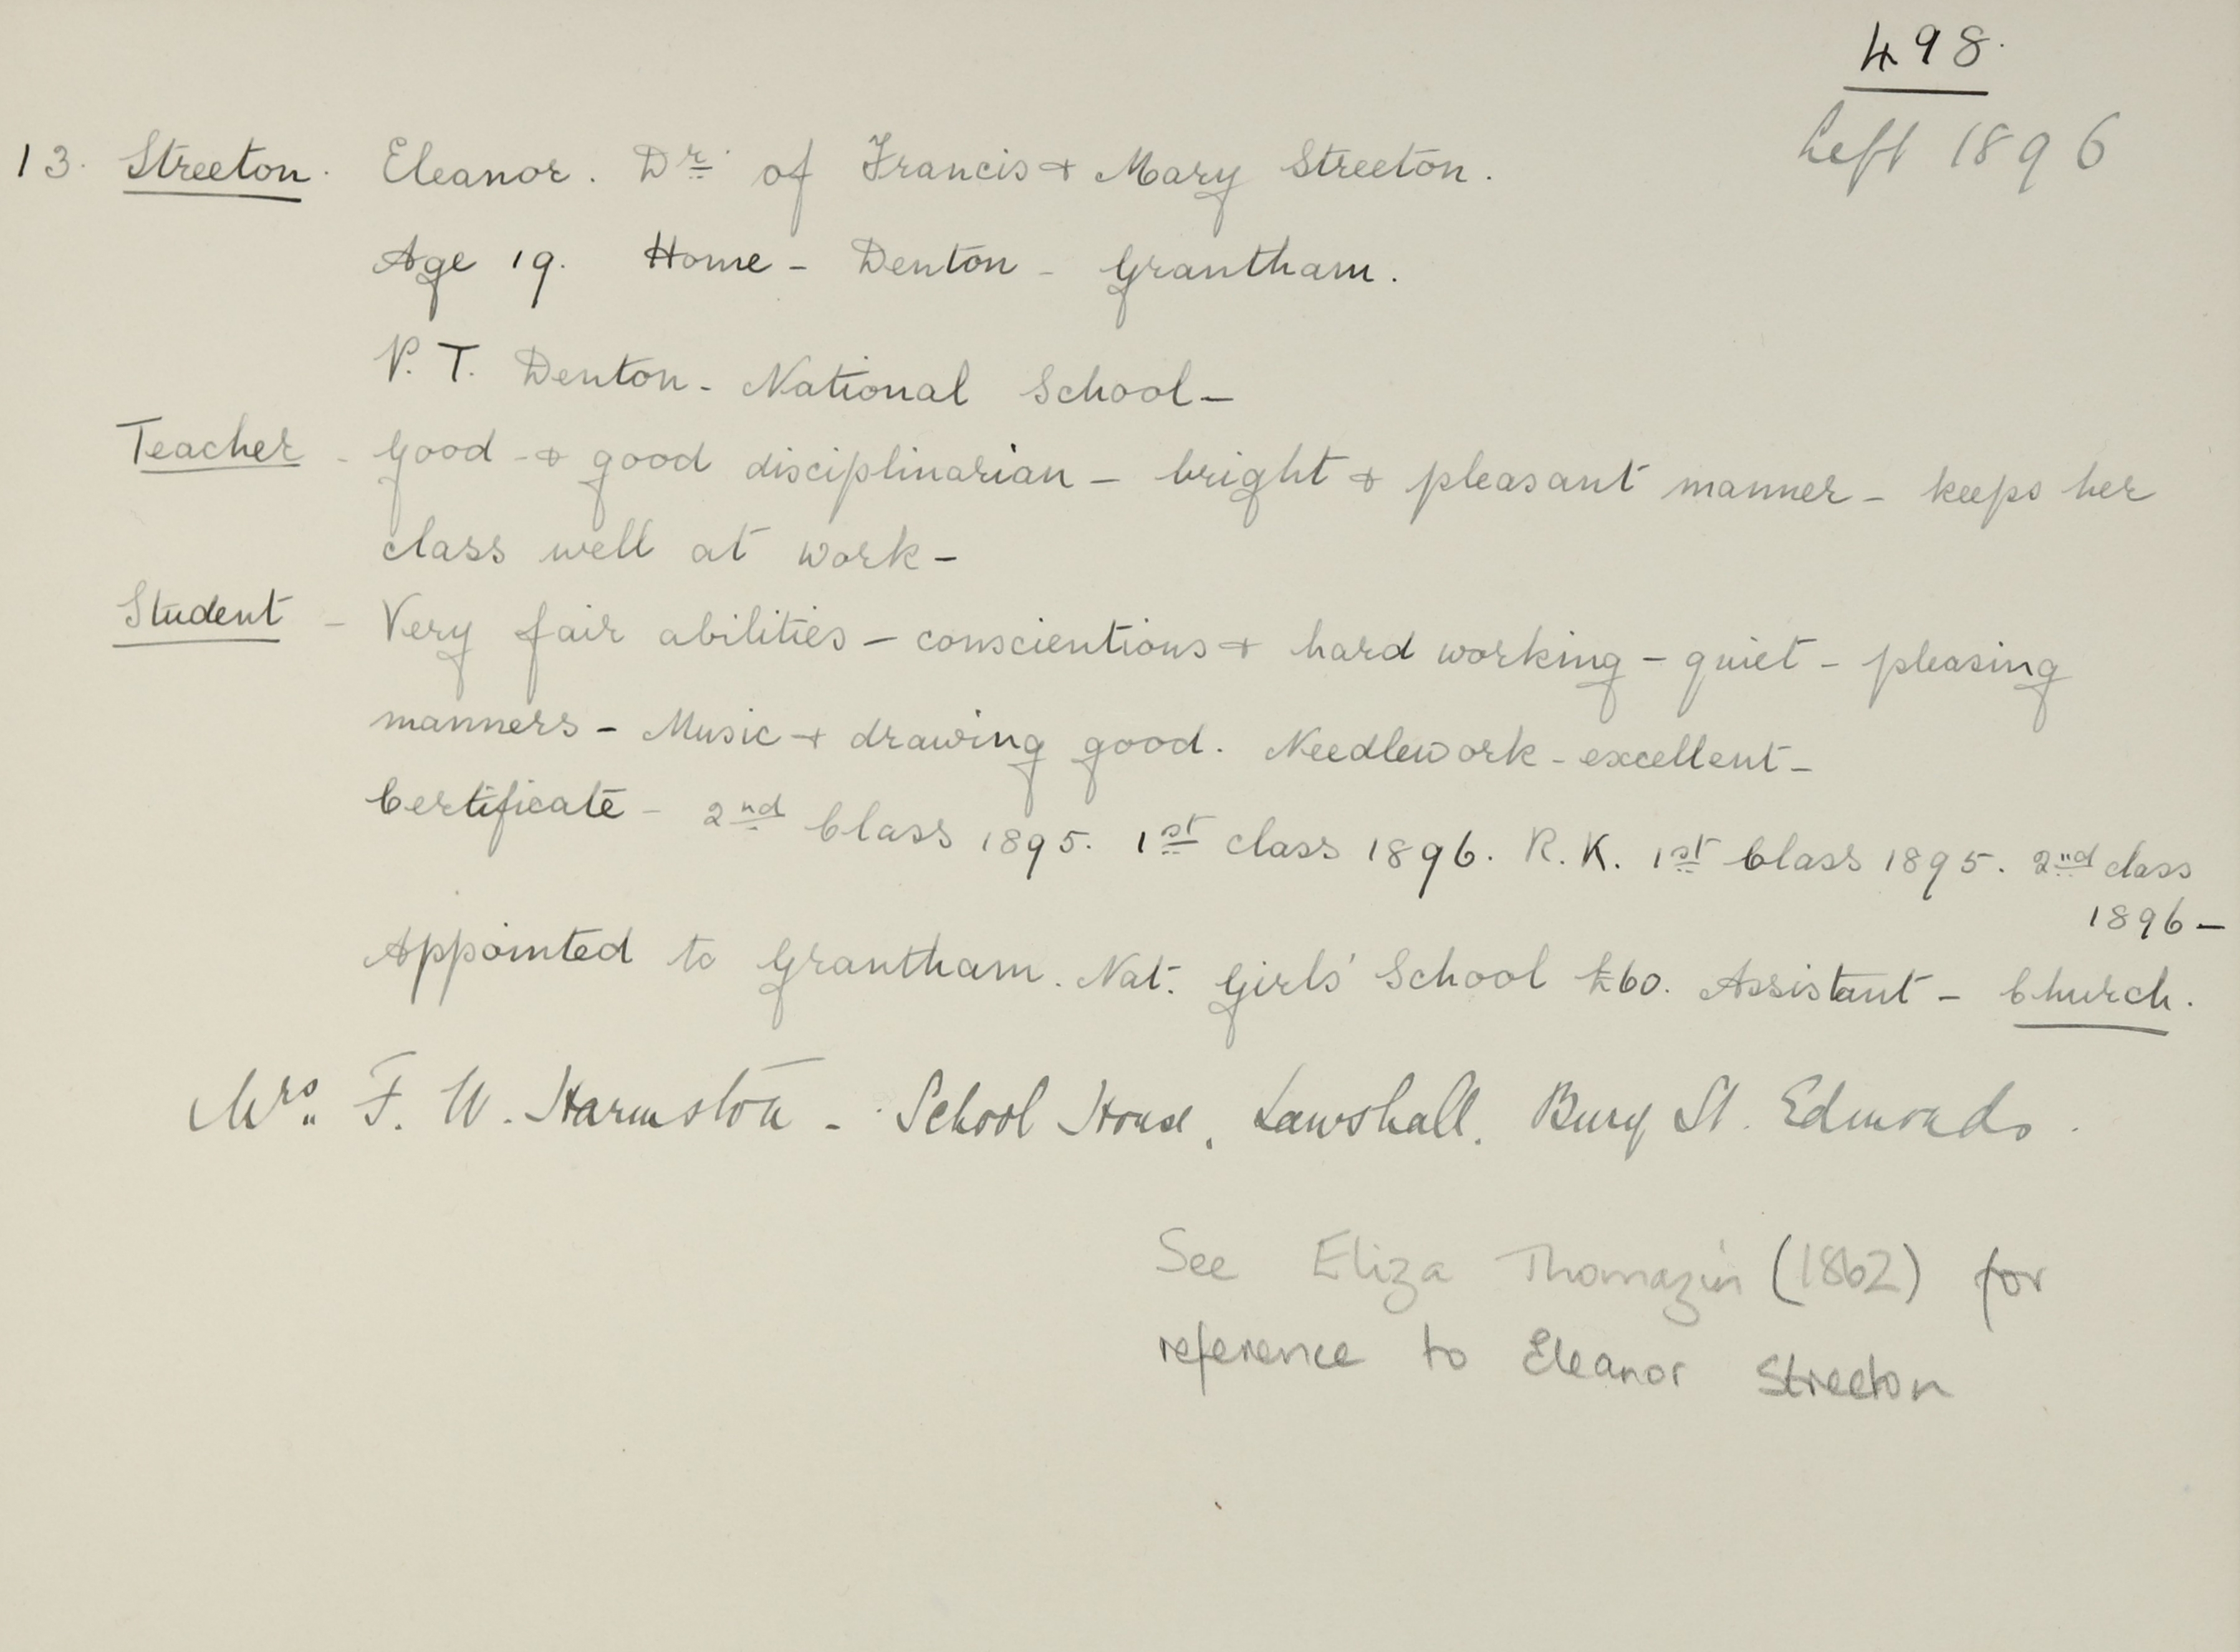 498.
Left 1896
13. Streeton. Eleanor. Dr. of Francis + Mary Streeton.
Age 19. Home - Denton - Grantham.
P. T. Denton - National School -
Teacher - Good - + good disciplinarian - bright + pleasant manner - keeps her
class well at work -
Student - Very fair abilities - conscientious + hard working - quiet - pleasing
manners - Music + drawing good. Needlework - excellent -
Certificate - 2nd Class 1895. 1st class 1896. R. K. 1st Class 1895. 2nd class
1896 -
Appointed to Grantham. Nat. Girls' School £60. Assistant - Church.
Mrs. F. W. Harmston - School House, Lawshall. Bury St. Edmonds.
See Eliza Thomazin (1862) for
reference to Eleanor Streeton